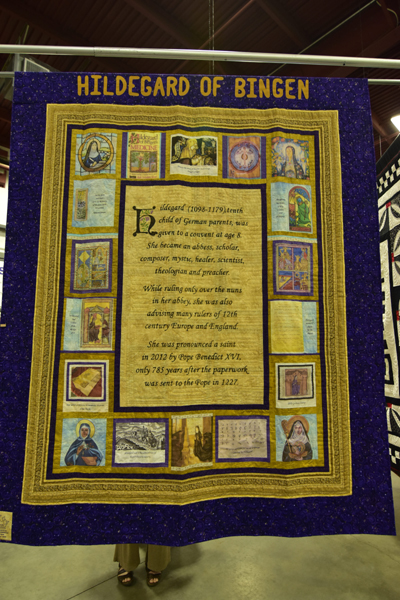 HILDEGARD OF BINGEN
Hildegard (1098-1179), tenth
child of German parents, was
given to a convent at age 8.
She became an abbess, scholar,
composer, mystic, healer, scientist,
theologian and preacher.
While ruling only over the nuns
in her abbey, she was also
advising many rulers of 12th
century Europe and England.
She was pronounced a saint
in 2012 by Pope Benedict XVI,
only 785 years after the paperwork
was sent to the Pope in 1227.